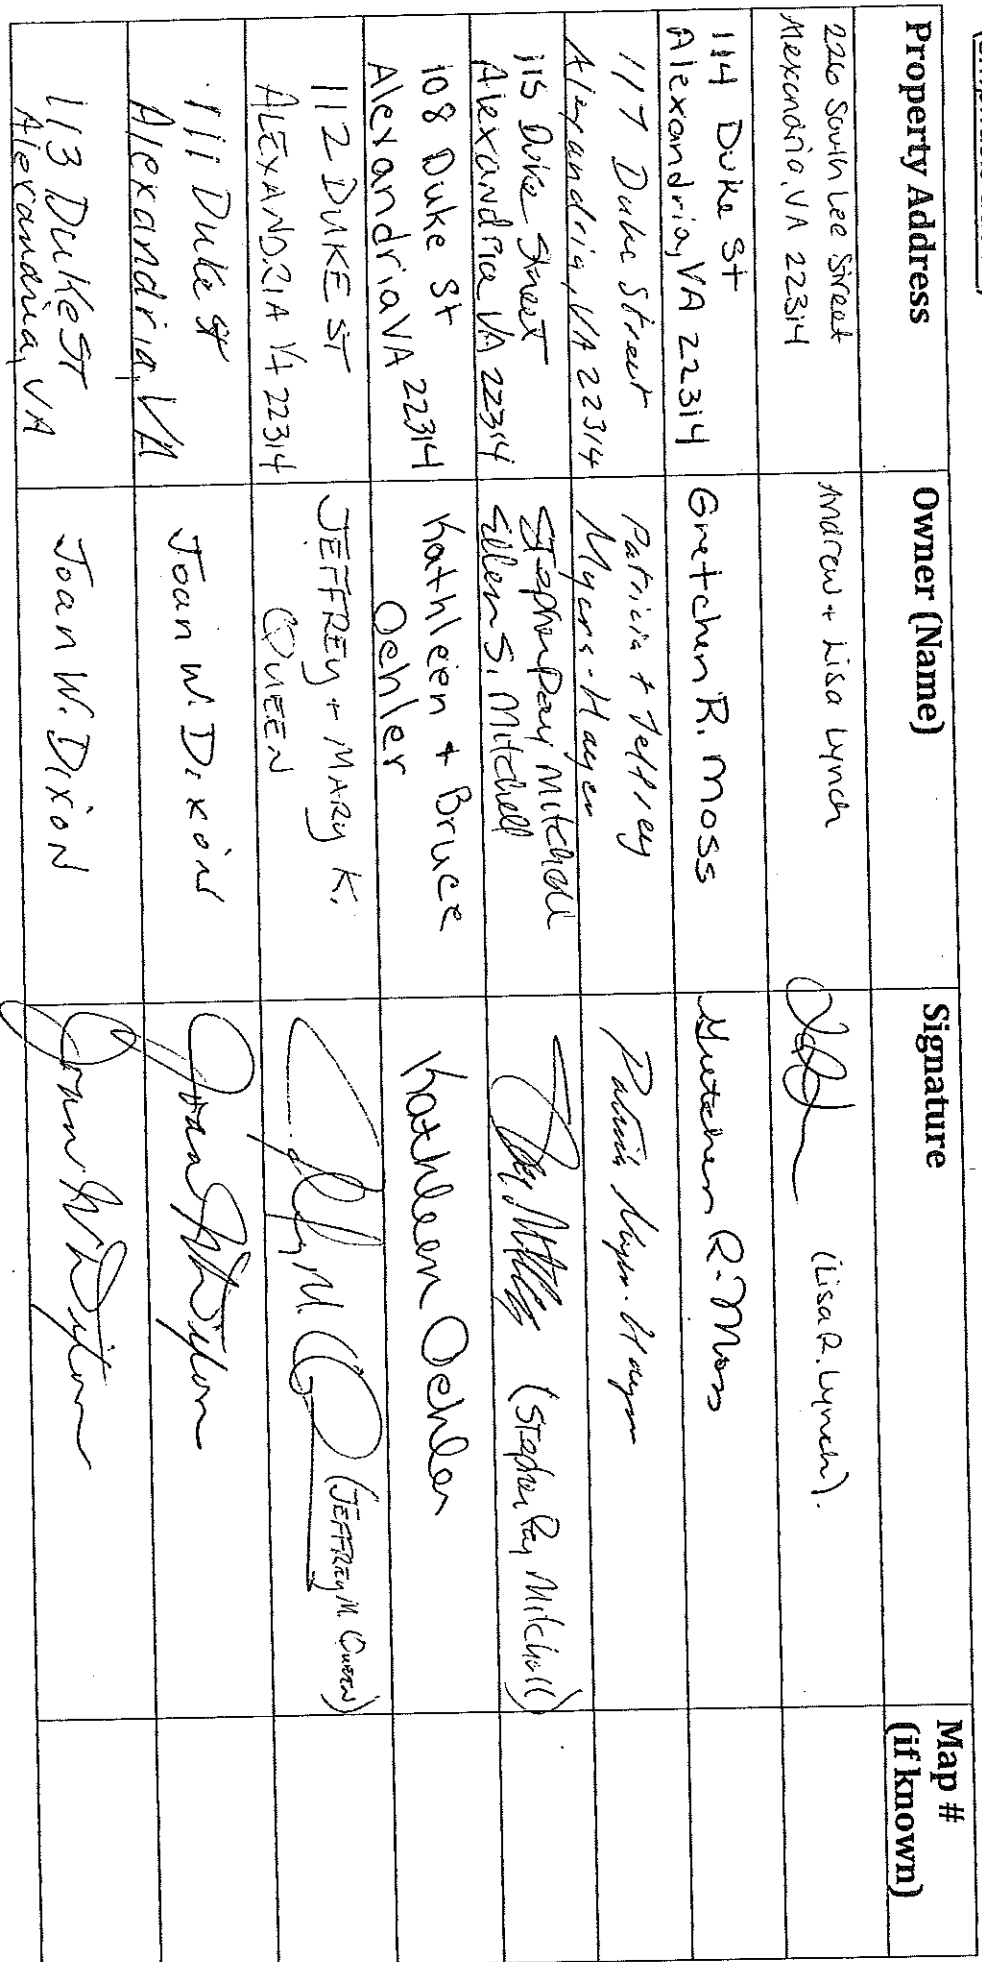 Property Address
Owner (Name)
Signature
Map #
(if known)
226 South Lee Street
Alexandria, VA 22314
Andrew + Lisa Lynch
(Lisa R. Lynch).
114 Duke St
Alexandria, VA 22314
Gretchen R. Moss
Gretchen R. Moss
117 Duke Street
Alexandria, VA 22314
Patricia + Jeffrey
Myers-Hayer
Patricia Myers-Hayer
115 Duke Street
Alexandria VA 22314
Stephen Day Mitchell
Ellen S. Mitchell
(Stephen Day Mitchell)
108 Duke St
Alexandria VA 22314
Kathleen + Bruce
Oehler
Kathleen Oehler
112 DUKE ST
ALEXANDRIA VA 22314
JEFFREY + MARY K.
QUEEN
(JEFFREY M. QUEEN)
111 Duke St
Alexandria, VA
Joan W. Dixon
Joan W Dixon
113 Duke ST
Alexandria, VA
Joan W. Dixon
Joan W Dixon